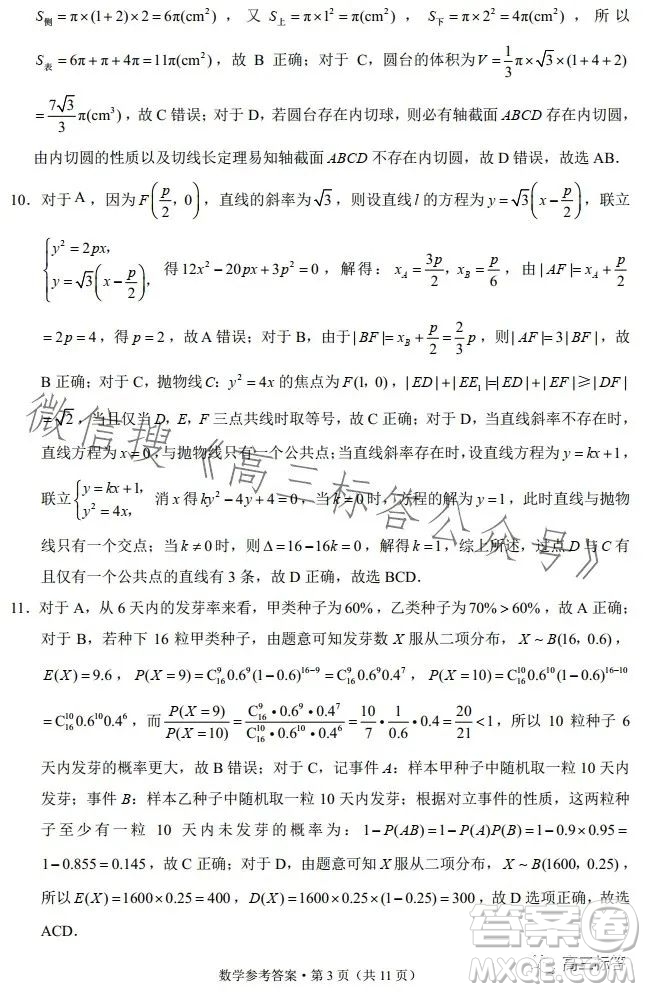 S侧=π×(1+2)×2=6π(cm²)，又 S上=π×1²=π(cm²)，S下=π×2²=4π(cm²)，所以
S表=6π+π+4π=11π(cm²)，故 B 正确；对于 C，圆台的体积为V=1/3 π×√3×(1+4+2)
=7√3/3 π(cm³)，故 C 错误；对于 D，若圆台存在内切球，则必有轴截面 ABCD 存在内切圆，
由内切圆的性质以及切线长定理易知轴截面 ABCD 不存在内切圆，故 D 错误，故选 AB．
10．对于 A，因为 F(p/2，0)，直线的斜率为√3，则设直线 l 的方程为 y=√3(x−p/2)，联立
{y²=2px，
y=√3(x−p/2)，得12x²−20px+3p²=0，解得：xA=3p/2，xB=p/6，由|AF|=xA+p/2
=2p=4，得 p=2，故 A 错误；对于 B，由于|BF|=xB+p/2=2/3 p，则|AF|=3|BF|，故
B 正确；对于 C，抛物线 C：y²=4x 的焦点为 F(1，0)，|ED|+|EE₁|=|ED|+|EF|≥|DF|
=√2，当且仅当 D，E，F 三点共线时取等号，故 C 正确；对于 D，当直线斜率不存在时，
直线方程为 x=0，与抛物线只有一个公共点；当直线斜率存在时，设直线方程为 y=kx+1，
联立{y=kx+1，
y²=4x，消 x 得 ky²−4y+4=0，当 k=0 时，方程的解为 y=1，此时直线与抛物
线只有一个交点；当 k≠0 时，则 Δ=16−16k=0，解得 k=1，综上所述，过点 D 与 C 有
且仅有一个公共点的直线有 3 条，故 D 正确，故选 BCD．
11．对于 A，从 6 天内的发芽率来看，甲类种子为60%，乙类种子为70%＞60%，故 A 正确；
对于 B，若种下 16 粒甲类种子，由题意可知发芽数 X 服从二项分布，X～B(16，0.6)，
E(X)=9.6，P(X=9)=C₁₆⁹0.6⁹(1−0.6)¹⁶⁻⁹=C₁₆⁹0.6⁹0.4⁷，P(X=10)=C₁₆¹⁰0.6¹⁰(1−0.6)¹⁶⁻¹⁰
=C₁₆¹⁰0.6¹⁰0.4⁶，而P(X=9)/P(X=10)=C₁₆⁹•0.6⁹•0.4⁷/C₁₆¹⁰•0.6¹⁰•0.4⁶=10/7•1/0.6•0.4=20/21＜1，所以 10 粒种子 6
天内发芽的概率更大，故 B 错误；对于 C，记事件 A：样本甲种子中随机取一粒 10 天内
发芽；事件 B：样本乙种子中随机取一粒 10 天内发芽；根据对立事件的性质，这两粒种
子至少有一粒 10 天内未发芽的概率为：1−P(AB)=1−P(A)P(B)=1−0.9×0.95=
1−0.855=0.145，故 C 正确；对于 D，由题意可知发芽数 X 服从二项分布，X～B(1600，0.25)，
所以 E(X)=1600×0.25=400，D(X)=1600×0.25×(1−0.25)=300，故 D 选项正确，故选
ACD．
数学参考答案·第 3 页（共 11 页）
微信搜《高三标答公众号》
答案圈
高三标答